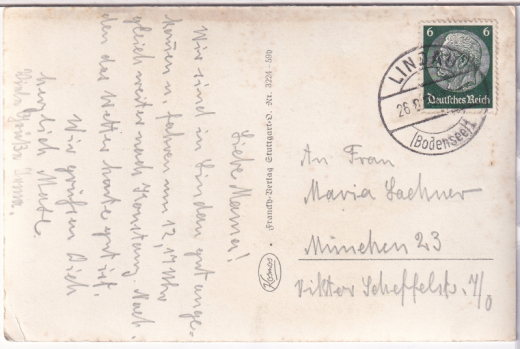 Liebe Mama!
Wir sind in Lindau gut ange-
kommen u. fahren um 12,17 Uhr
gleich weiter nach Konstanz. Nach-
dem das Wetter heute gut ist.
Wir grüßen Dich
herzlich
Viele Grüße
Franckh-Verlag Stuttgart-O. Nr. 3224 59b
Kosmos
6 6
Deutsches Reich
LINDAU
26
(Bodensee)
An Frau
Maria Lachner
München 23
Viktor Scheffelstr. 7/0